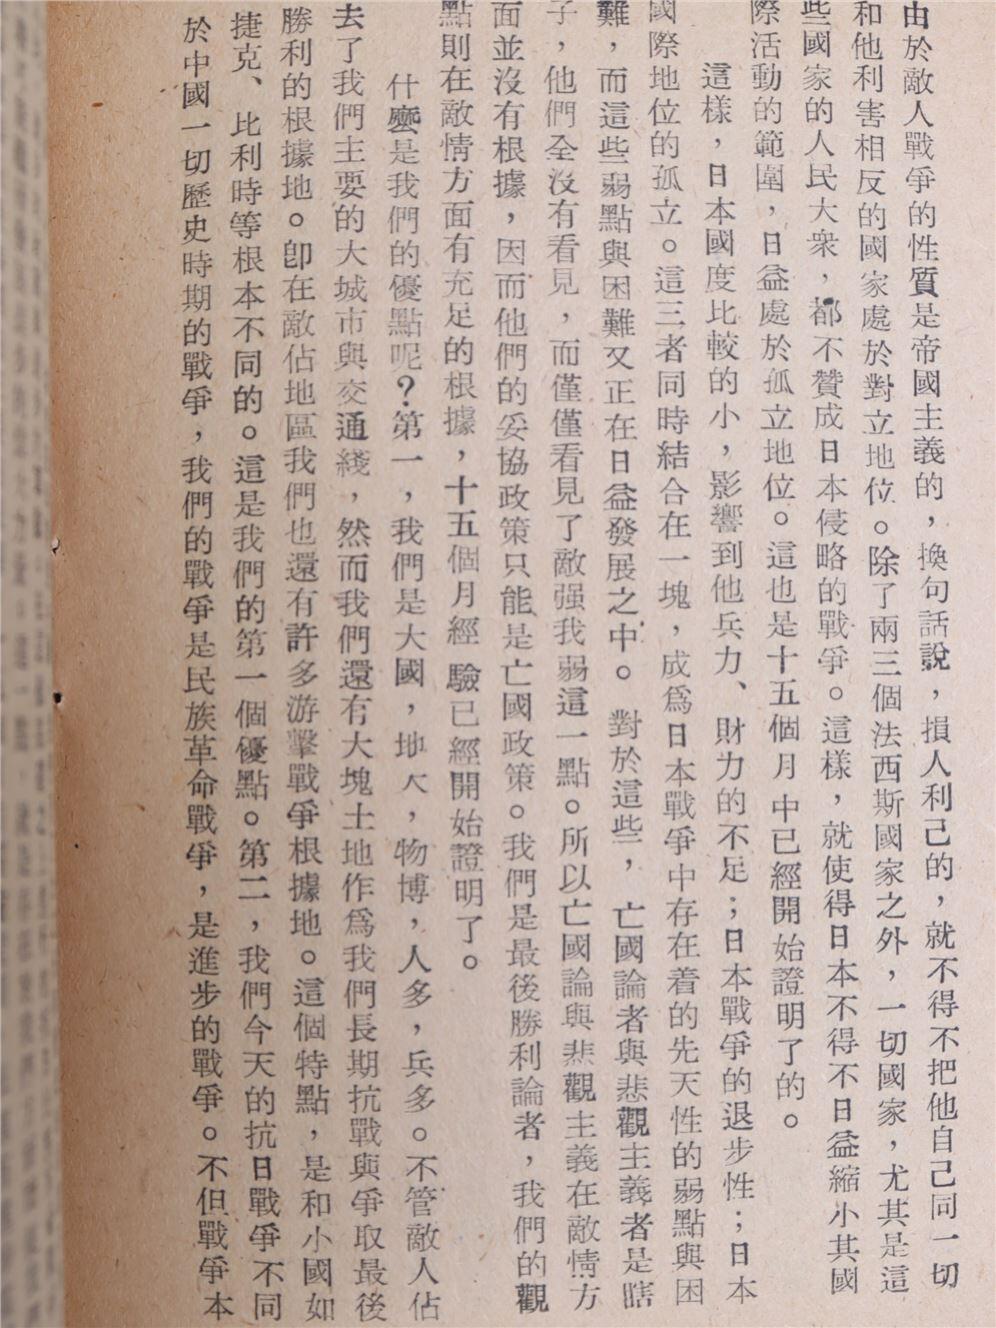 由於敵人戰爭的性質是帝國主義的，換句話說，損人利己的，就不得不把他自己同一切
和他利害相反的國家處於對立地位。除了兩三個法西斯國家之外，一切國家，尤其是這
些國家的人民大衆，都不贊成日本侵略的戰爭。這樣，就使得日本不得不日益縮小其國
際活動的範圍，日益處於孤立地位。這也是十五個月中已經開始證明了的。
這樣，日本國度比較的小，影響到他兵力、財力的不足；日本戰爭的退步性；日本
國際地位的孤立。這三者同時結合在一塊，成爲日本戰爭中存在着的先天性的弱點與困
難，而這些弱點與困難又正在日益發展之中。對於這些，亡國論者與悲觀主義者是瞎
子，他們全沒有看見，而僅僅看見了敵强我弱這一點。所以亡國論與悲觀主義在敵情方
面並沒有根據，因而他們的妥協政策只能是亡國政策。我們是最後勝利論者，我們的觀
點則在敵情方面有充足的根據，十五個月經驗已經開始證明了。
什麽是我們的優點呢？第一，我們是大國，地大，物博，人多，兵多。不管敵人佔
去了我們主要的大城市與交通綫，然而我們還有大塊土地作爲我們長期抗戰與爭取最後
勝利的根據地。卽在敵佔地區我們也還有許多游擊戰爭根據地。這個特點，是和小國如
捷克、比利時等根本不同的。這是我們的第一個優點。第二，我們今天的抗日戰爭不同
於中國一切歷史時期的戰爭，我們的戰爭是民族革命戰爭，是進步的戰爭。不但戰爭本